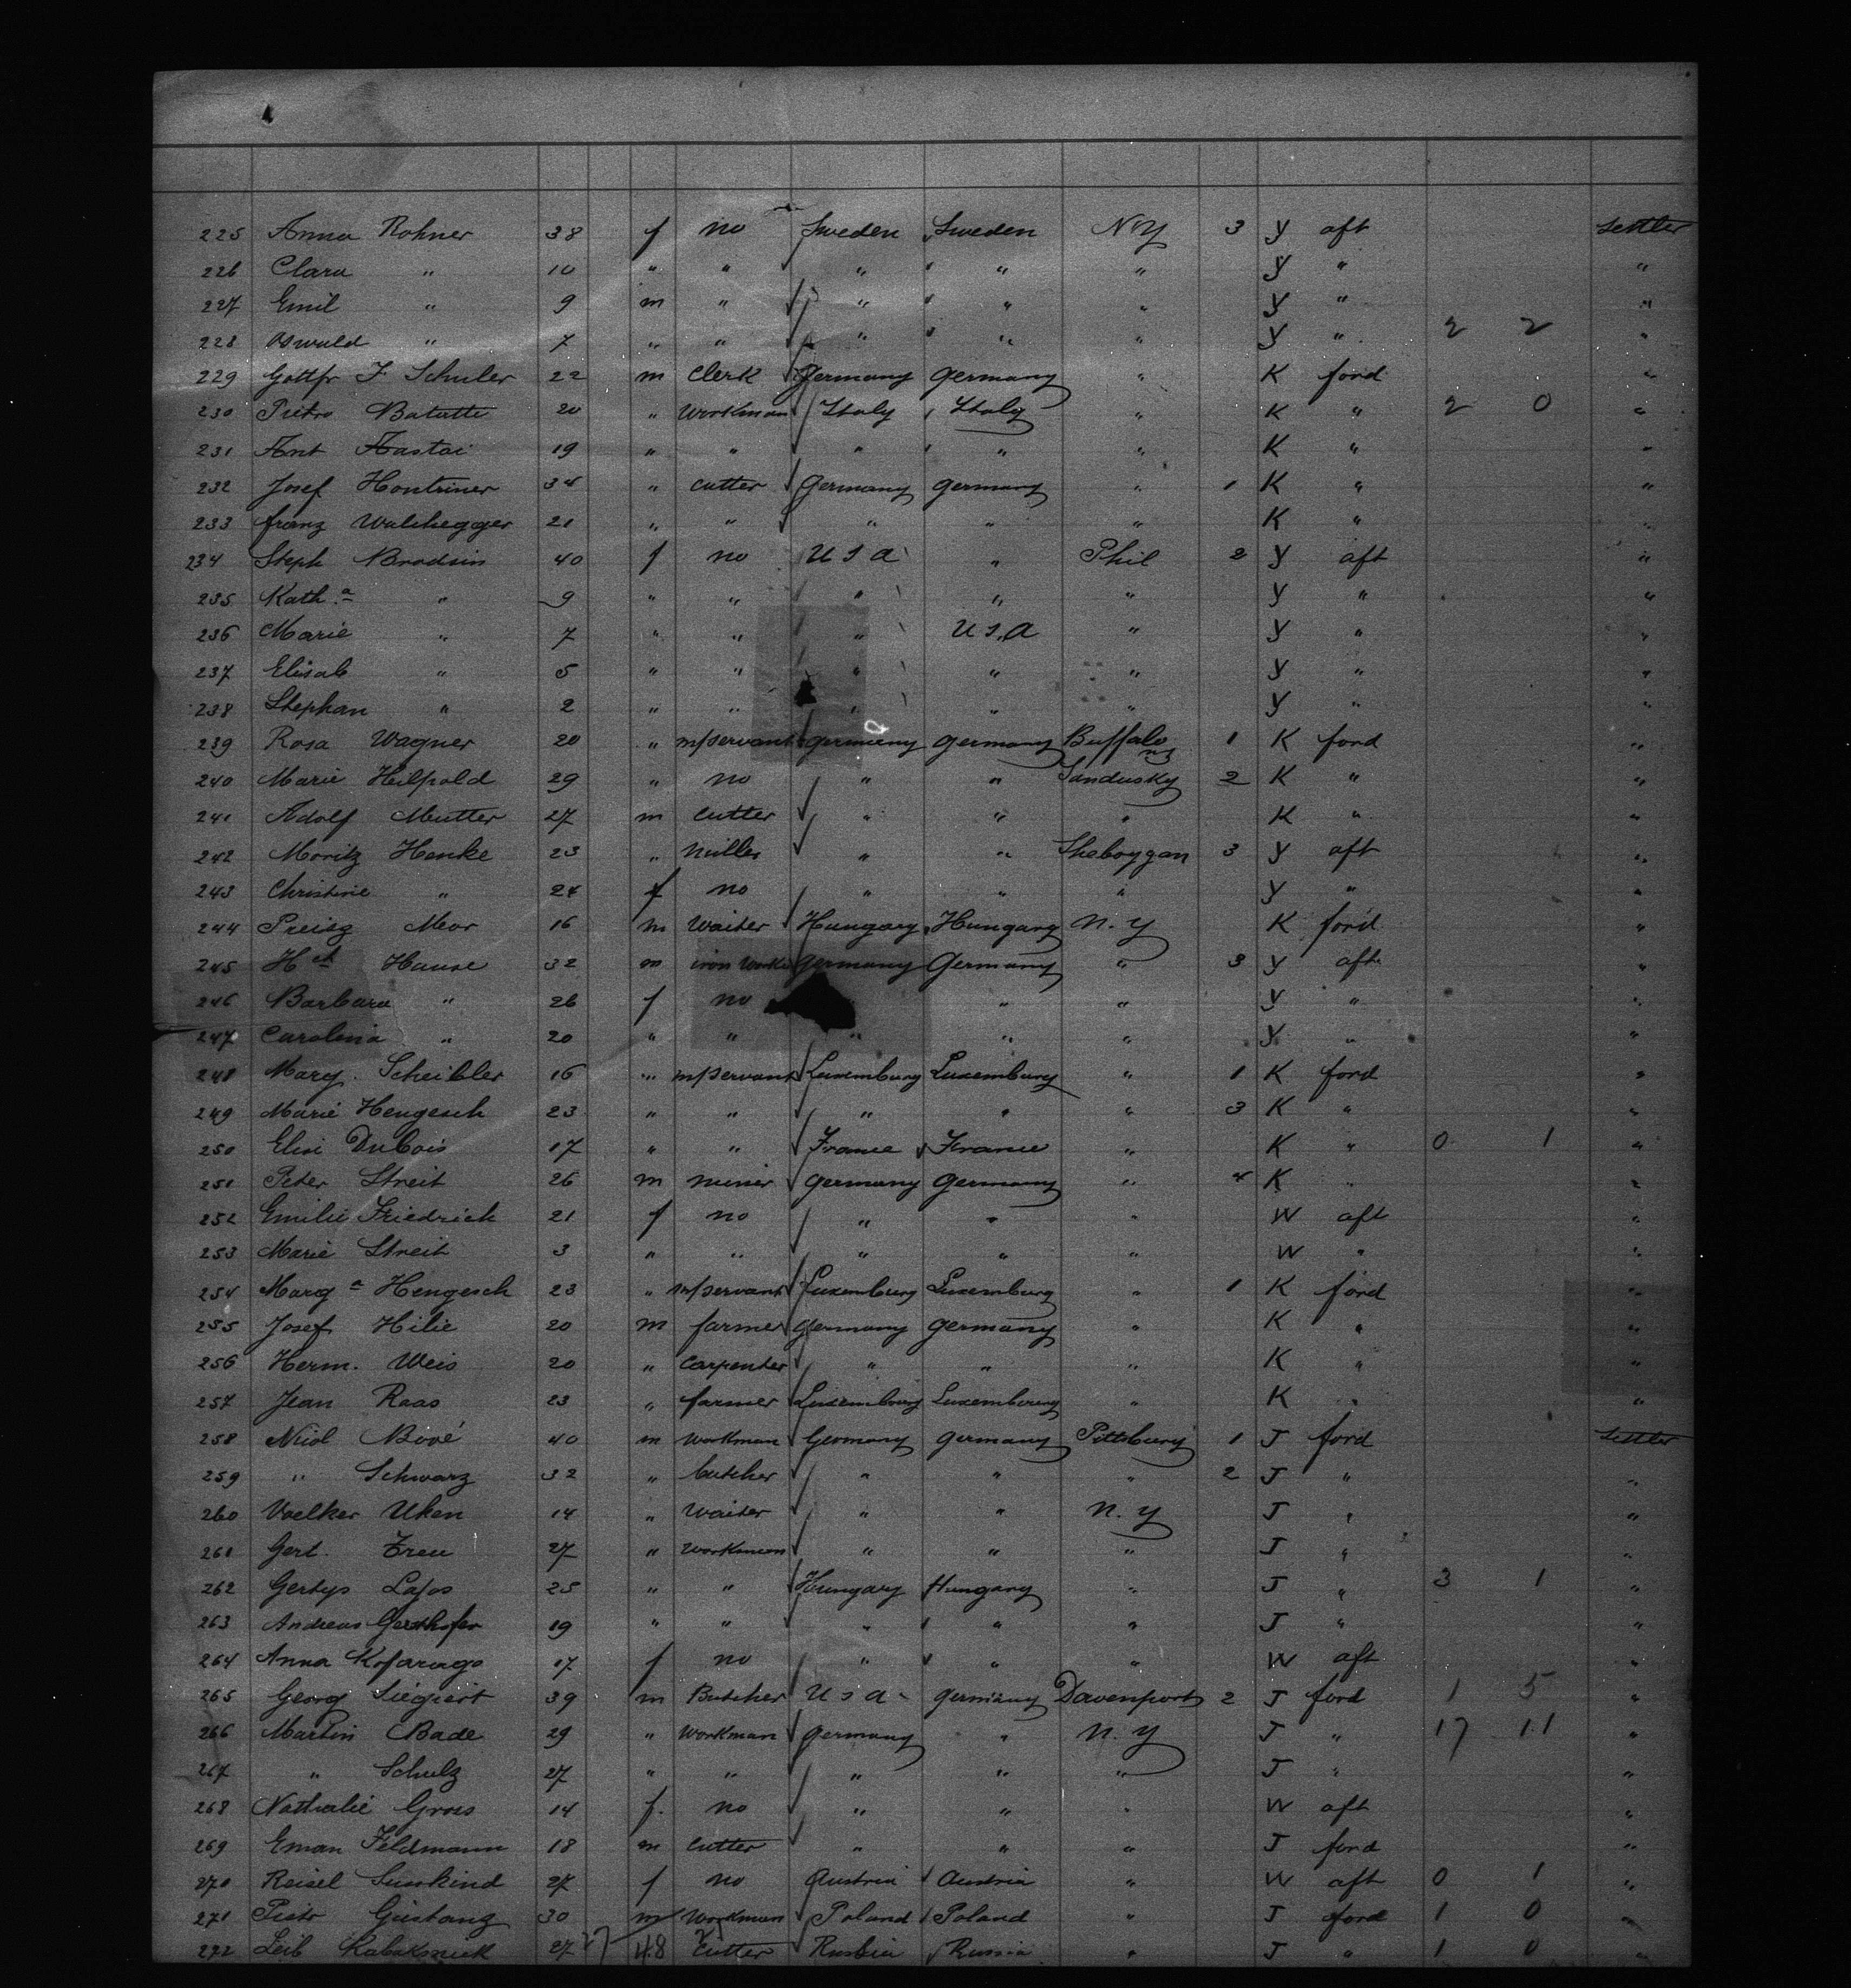 225 Anna Rohner 38 f no Sweden Sweden N.Y 3 Y aft Settler
226 Clara " 10 " " " " " Y " "
227 Emil " 9 m " " " " Y " "
228 Oswald " 7 " " " " " Y " 2 2 "
229 Gottfr F Schuler 22 m Clerk Germany Germany " K ford "
230 Pietro Batutti 20 " Workman Italy Italy " K " 2 0 "
231 Ant 19 " " " " " K " "
232 Josef Hontriner 34 " cutter Germany Germany " 1 K " "
233 Franz Walchegger 21 " " " " " K " "
234 Steph Brodsin 40 f no U S A " Phil 2 Y aft "
235 Kath.a " 9 " " " " " Y " "
236 Marie " 7 " " " U S, A " Y " "
237 Elisab " 5 " " " " " Y " "
238 Stephan " 2 " " " " " Y " "
239 Rosa Wagner 20 " m/servant Germany Germany Buffalo 1 K ford "
240 Marie Hilpold 29 " no " " Sandusky 2 K " "
241 Adolf Mutter 27 m Cutter " " " K " "
242 Moritz Henke 23 " Miller " " Sheboygan 3 Y aft "
243 Christine " 24 f no " " " Y " "
244 Preisz Mor 16 m Waiter Hungary Hungary N. Y K ford "
245 Hch Hause 32 m iron Worker Germany Germany " 3 Y aft "
246 Barbara " 26 f no " " Y " "
247 Carolina " 20 " " " " " Y " "
248 Marg. Scheibler 16 " m/servant Luxemburg Luxemburg " 1 K ford "
249 Marie Hengesch 23 " " " " " 3 K " "
250 Elise DuBois 17 " " France France " K " 0 1 "
251 Peter Streit 26 m miner Germany Germany " 4 K " "
252 Emilie Friedrich 21 f no " " " W aft "
253 Marie Streit 3 " " " " " W " "
254 Marg a Hengesch 23 " m/servant Luxemburg Luxemburg " 1 K ford "
255 Josef Hilie 20 m farmer Germany Germany " K " "
256 Herm. Weis 20 " Carpenter " " " K " "
257 Jean Raas 23 " farmer Luxembourg Luxembourg " K " "
258 Nicol Bové 40 m Workman Germany Germany Pittsburg 1 J ford Settler
259 " Schwarz 32 " butcher " " " 2 J " "
260 Voelker Uken 14 " Waiter " " N. Y J " "
261 Gert. Treu 27 " Workman " " " J " "
262 Gertys Lajos 25 " " Hungary Hungary " J " 3 1 "
263 Andreas Gersthofer 19 " " " " " J " "
264 Anna Kofarago 17 f no " " " W aft "
265 Georg Siegiert 39 m Butcher U S A Germany Davenport 2 J ford 1 5 "
266 Martin Bade 29 " Workman Germany " N. Y J " 17 11 "
267 " Schulz 27 " " " " " J " "
268 Nathalie Gross 14 f. no " " " W aft "
269 Eman Feldmann 18 m Cutter " " " J ford "
270 Reisel Susskind 27 f no Austria Austria " W aft 0 1 "
271 Piotr 30 m Workman Poland Poland " J ford 1 0 "
272 Leib 27 27 48 Cutter Russia Russia " J " 1 0 "